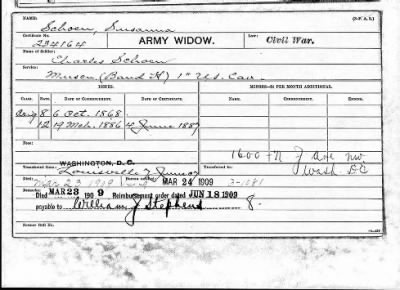 NAME: (3-F. A. B.)
Schoen, Susanna
Certificate No. Law:
234164 ARMY WIDOW. Civil War.
Name of Soldier:
Charles Schoen
Service:
Muscn. (Band) 1st U.S. Cav.
ISSUES. MINORS—$2 PER MONTH ADDITIONAL.
CLASS. RATE. DATE OF COMMENCEMENT. DATE OF CERTIFICATE. NAME. COMMENCING. ENDING.
Orig 8 6 Oct. 1868.
12 19 Mch. 1886 4 June 1887
1600 N J Ave NW.
WASHINGTON, D. C. Wash DC
Transferred from Transferred to
Louisville
MAR 23 1909 MAR 24 1909 3-1081
Died MAR 23 1909 Reimbursement order dated JUN 18 1909
payable to William J Stephens 8.
Former Roll No.